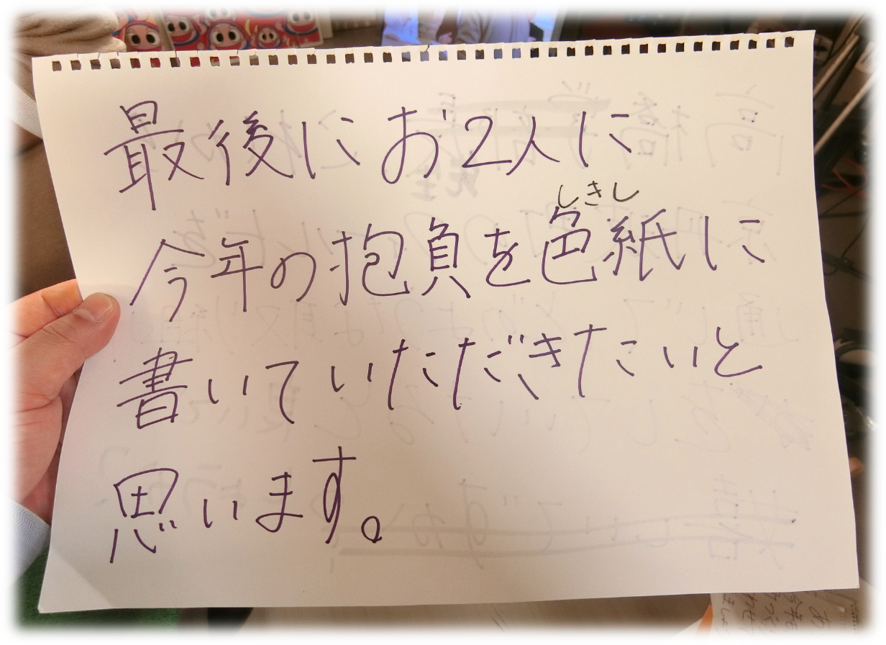 最後にお2人に
しきし
今年の抱負を色紙に
書いていただきたいと
思います。